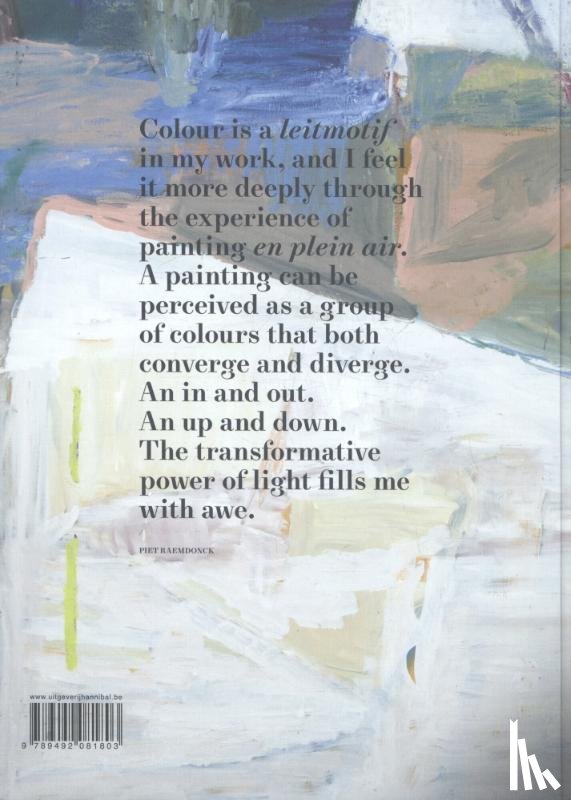 Colour is a leitmotif
in my work, and I feel
it more deeply through
the experience of
painting en plein air.
A painting can be
perceived as a group
of colours that both
converge and diverge.
An in and out.
An up and down.
The transformative
power of light fills me
with awe.
PIET RAEMDONCK
www.uitgeverijhannibal.be
9 789492 081803